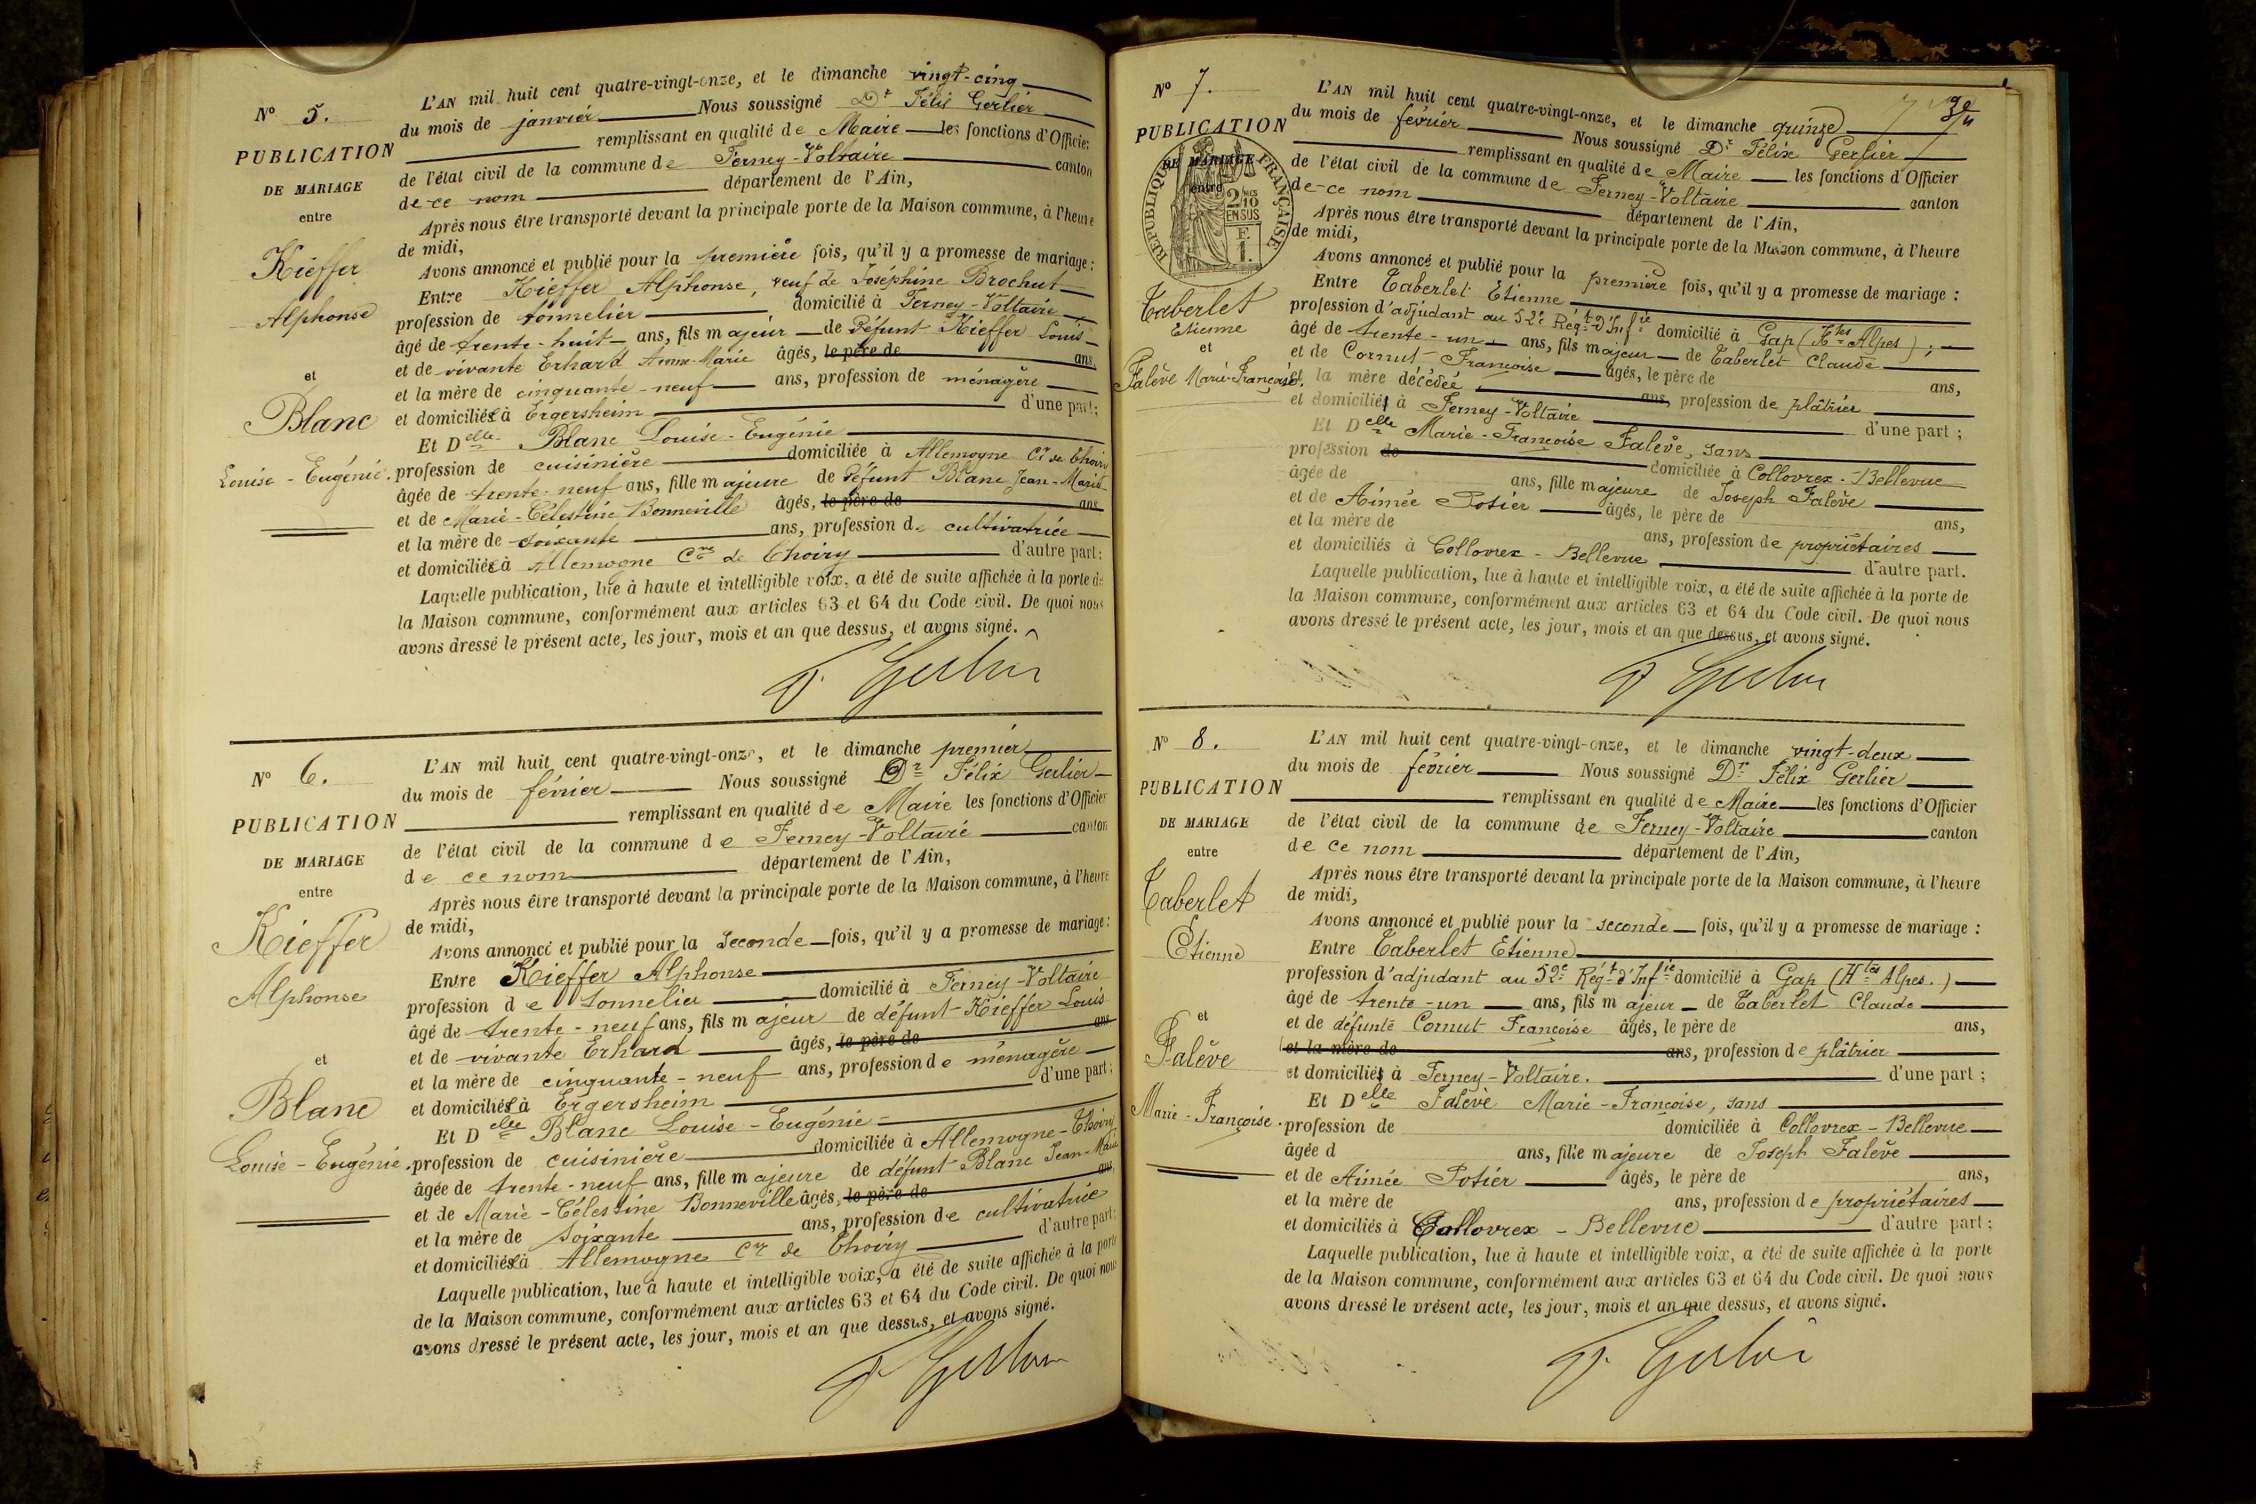 N° 5.
PUBLICATION
DE MARIAGE
entre
Kieffer
Alphonse
et
Blanc
Louise - Eugénie.
L'AN mil huit cent quatre-vingt-onze, et le dimanche vingt-cinq
du mois de janvier Nous soussigné Dr Félix Gerlier
remplissant en qualité de Maire les fonctions d'Officier
de l'état civil de la commune de Ferney-Voltaire canton
de ce nom département de l'Ain,
Après nous être transporté devant la principale porte de la Maison commune, à l'heure
de midi,
Avons annoncé et publié pour la première fois, qu'il y a promesse de mariage :
Entre Kieffer Alphonse, veuf de Joséphine Brochut
profession de tonnelier domicilié à Ferney-Voltaire
âgé de trente-huit ans, fils majeur de défunt Kieffer Louis
et de vivante Erhard Anna-Marie âgés, le père de ans,
et la mère de cinquante-neuf ans, profession de ménagère
et domiciliés à Ergersheim d'une part;
Et Delle Blanc Louise-Eugénie
profession de cuisinière domiciliée à Allemogne Cne de Thoiry
âgée de trente-neuf ans, fille majeure de défunt Blanc Jean-Marie
et de Marie-Célestine Bonneville âgés, le père de ans
et la mère de soixante ans, profession de cultivatrice
et domiciliés à Allemogne Cne de Thoiry d'autre part;
Laquelle publication, lue à haute et intelligible voix, a été de suite affichée à la porte de
la Maison commune, conformément aux articles 63 et 64 du Code civil. De quoi nous
avons dressé le présent acte, les jour, mois et an que dessus, et avons signé.
F. Gerlier
N° 6.
PUBLICATION
DE MARIAGE
entre
Kieffer
Alphonse
et
Blanc
Louise - Eugénie.
L'AN mil huit cent quatre-vingt-onze, et le dimanche premier
du mois de février Nous soussigné Dr Félix Gerlier
remplissant en qualité de Maire les fonctions d'Officier
de l'état civil de la commune de Ferney-Voltaire canton
de ce nom département de l'Ain,
Après nous être transporté devant la principale porte de la Maison commune, à l'heure
de midi,
Avons annoncé et publié pour la seconde fois, qu'il y a promesse de mariage :
Entre Kieffer Alphonse
profession de tonnelier domicilié à Ferney-Voltaire
âgé de trente-neuf ans, fils majeur de défunt Kieffer Louis
et de vivante Erhard âgés, le père de ans
et la mère de cinquante-neuf ans, profession de ménagère
et domiciliés à Ergersheim d'une part;
Et Delle Blanc Louise-Eugénie
profession de cuisinière domiciliée à Allemogne-Thoiry
âgée de trente-neuf ans, fille majeure de défunt Blanc Jean-Marie
et de Marie-Célestine Bonneville âgés, le père de ans
et la mère de soixante ans, profession de cultivatrice
et domiciliés à Allemogne Cne de Thoiry d'autre part;
Laquelle publication, lue à haute et intelligible voix, a été de suite affichée à la porte
de la Maison commune, conformément aux articles 63 et 64 du Code civil. De quoi nous
avons dressé le présent acte, les jour, mois et an que dessus, et avons signé.
F. Gerlier
N° 7.
PUBLICATION
DE MARIAGE
entre
RÉPUBLIQUE FRANÇAISE
2/10
EN SUS
F.
1.
Taberlet
Etienne
et
Falève Marie-Françoise.
L'AN mil huit cent quatre-vingt-onze, et le dimanche quinze
du mois de février Nous soussigné Dr Félix Gerlier
remplissant en qualité de Maire les fonctions d'Officier
de l'état civil de la commune de Ferney-Voltaire canton
de ce nom département de l'Ain,
Après nous être transporté devant la principale porte de la Maison commune, à l'heure
de midi,
Avons annoncé et publié pour la première fois, qu'il y a promesse de mariage :
Entre Taberlet Etienne
profession d'adjudant au 52e Régt d'Infie domicilié à Gap (Htes Alpes) ;
âgé de trente-un ans, fils majeur de Taberlet Claude
et de Cornut Françoise âgés, le père de ans,
et la mère décédée ans, profession de plâtrier
et domiciliés à Ferney-Voltaire d'une part ;
Et Delle Marie-Françoise Falève, sans
profession de domiciliée à Collovrex-Bellevue
âgée de ans, fille majeure de Joseph Falève
et de Aimée Potier âgés, le père de ans,
et la mère de ans, profession de propriétaires
et domiciliés à Collovrex-Bellevue d'autre part.
Laquelle publication, lue à haute et intelligible voix, a été de suite affichée à la porte de
la Maison commune, conformément aux articles 63 et 64 du Code civil. De quoi nous
avons dressé le présent acte, les jour, mois et an que dessus, et avons signé.
F. Gerlier
N° 8.
PUBLICATION
DE MARIAGE
entre
Taberlet
Etienne
et
Falève
Marie - Françoise.
L'AN mil huit cent quatre-vingt-onze, et le dimanche vingt-deux
du mois de février Nous soussigné Dr Félix Gerlier
remplissant en qualité de Maire les fonctions d'Officier
de l'état civil de la commune de Ferney-Voltaire canton
de ce nom département de l'Ain,
Après nous être transporté devant la principale porte de la Maison commune, à l'heure
de midi,
Avons annoncé et publié pour la seconde fois, qu'il y a promesse de mariage :
Entre Taberlet Etienne
profession d'adjudant au 52e Régt d'Infie domicilié à Gap (Htes Alpes.)
âgé de trente-un ans, fils majeur de Taberlet Claude
et de défunte Cornut Françoise âgés, le père de ans,
et la mère de ans, profession de plâtrier
et domiciliés à Ferney-Voltaire. d'une part ;
Et Delle Falève Marie-Françoise, sans
profession de domiciliée à Collovrex-Bellevue
âgée d ans, fille majeure de Joseph Falève
et de Aimée Potier âgés, le père de ans,
et la mère de ans, profession de propriétaires
et domiciliés à Collovrex - Bellevue d'autre part ;
Laquelle publication, lue à haute et intelligible voix, a été de suite affichée à la porte
de la Maison commune, conformément aux articles 63 et 64 du Code civil. De quoi nous
avons dressé le présent acte, les jour, mois et an que dessus, et avons signé.
F. Gerlier